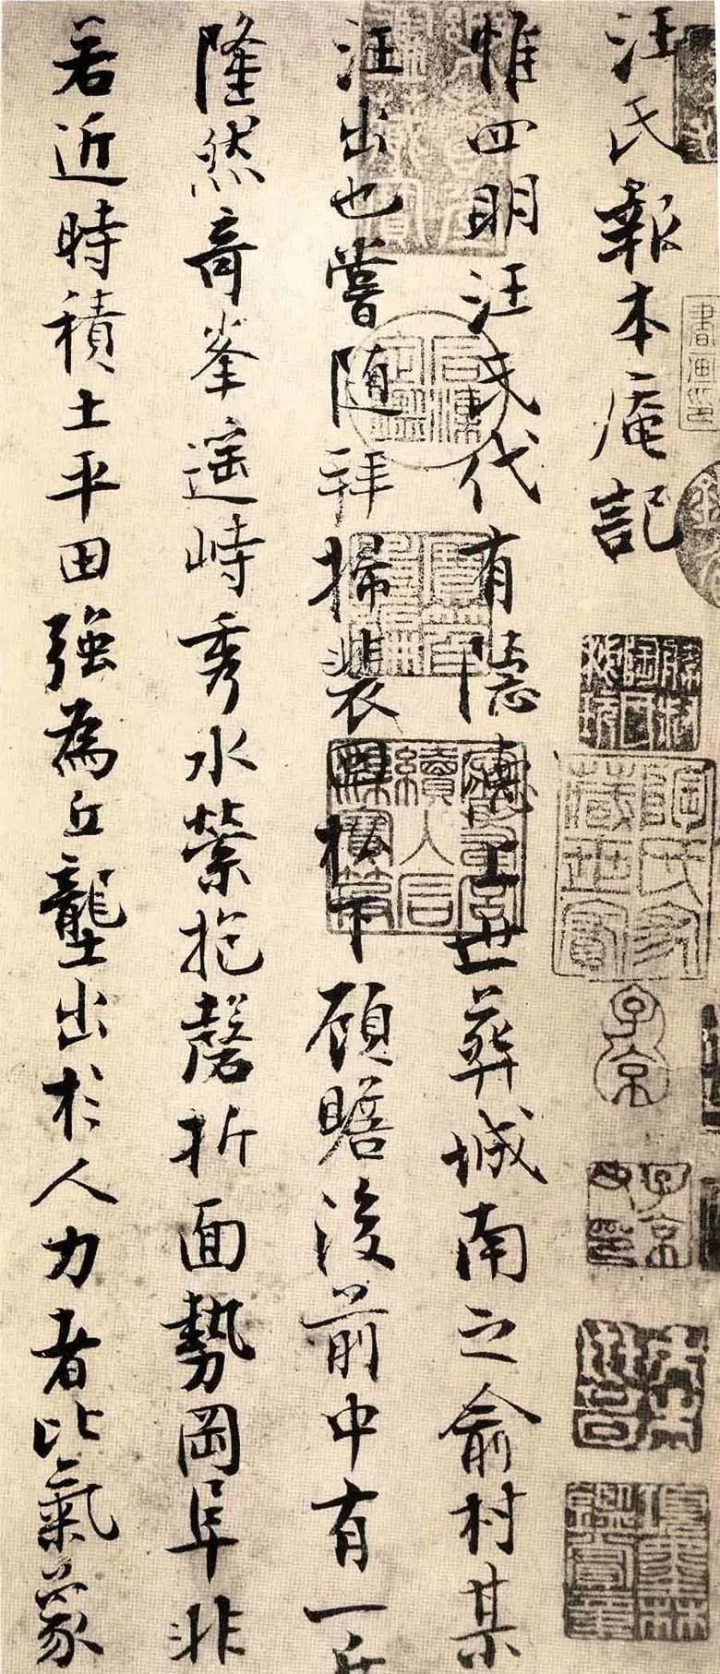 汪氏報本庵記
惟四明汪氏代有隱德上世葬城南之俞村某
汪出也嘗隨拜掃裴回松下顧瞻後前中有一丘
隆然奇峯遥峙秀水縈抱磬折面勢岡阜非
若近時積土平田強為丘壟出於人力者比氣象
陶氏家藏世寶
子京